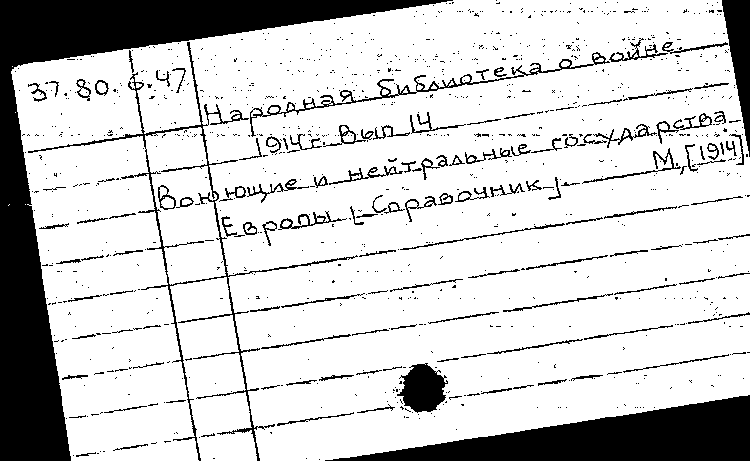 37.80.6.47
Народная библиотека о войне.
1914 г. Вып 14
Воюющие и нейтральные государства
Европы [Справочник]. М., [1914]